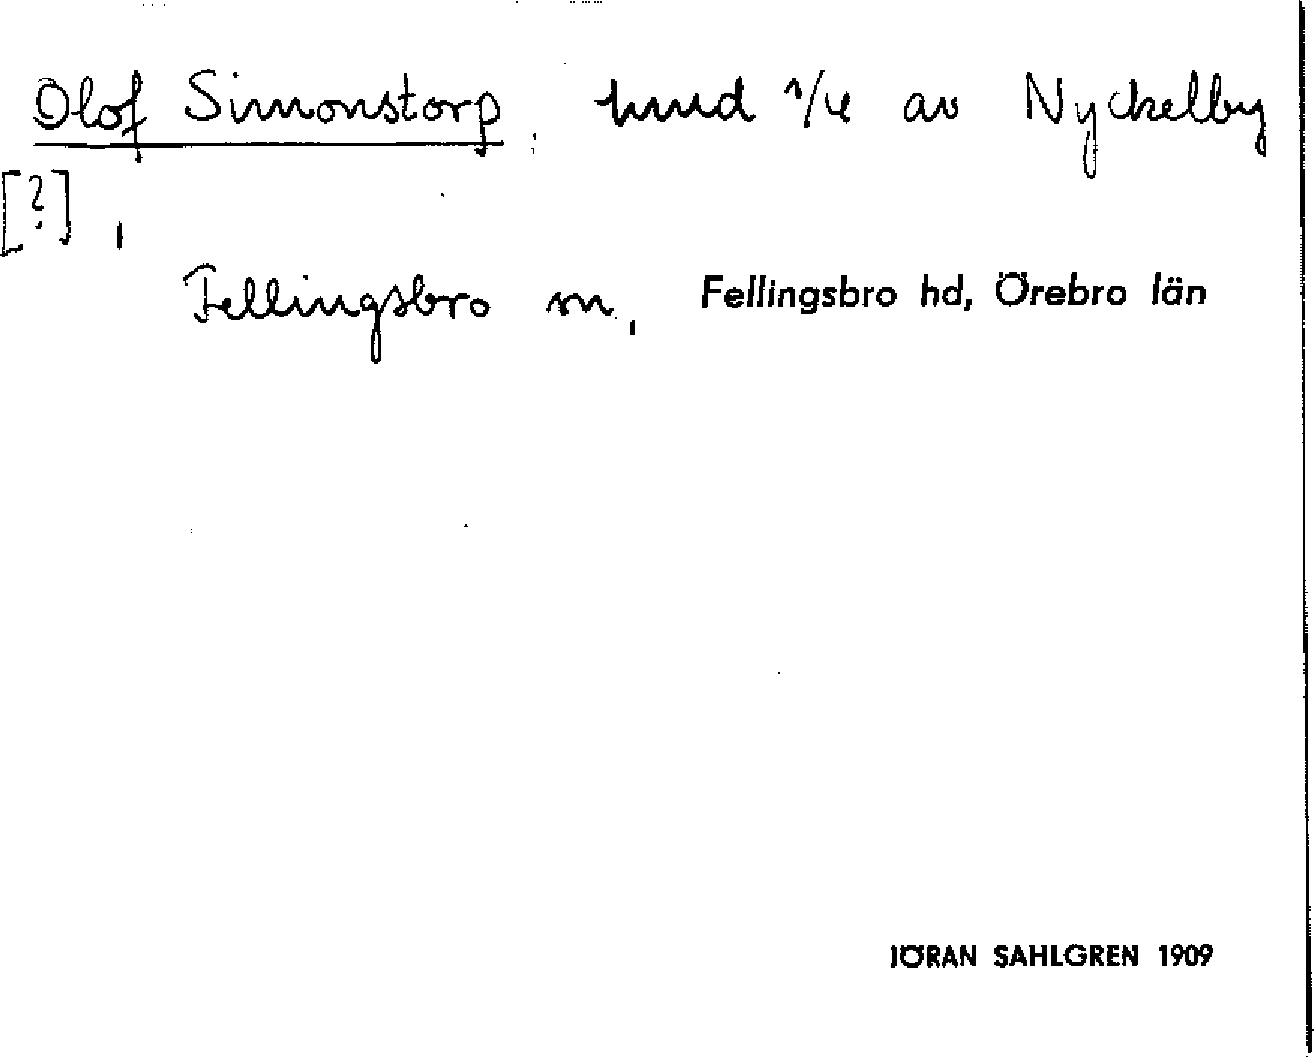 Olof Simonstorp, 1/4 av Nyckelby
[?],
Fellingsbro sn, Fellingsbro hd, Örebro län
JÖRAN SAHLGREN 1909